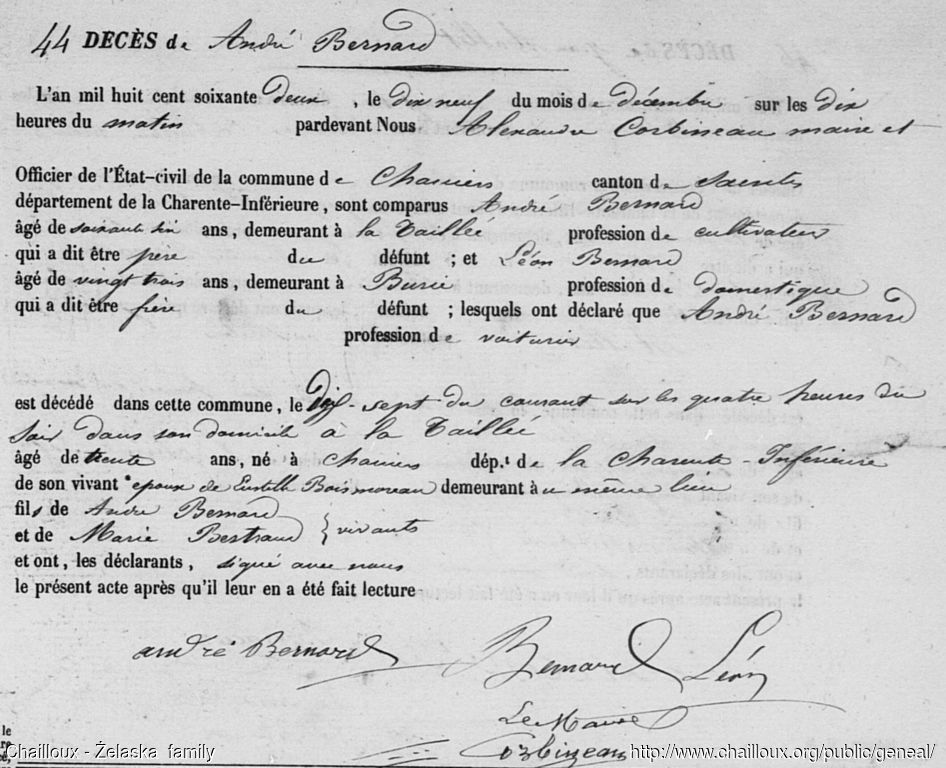 44 DECÈS de André Bernard
L'an mil huit cent soixante deux, le dix neuf du mois de décembre sur les dix
heures du matin pardevant Nous Alexandre Corbineau maire et
Officier de l'État-civil de la commune de Chaniers canton de Saintes
département de la Charente-Inférieure, sont comparus André Bernard
âgé de soixante six ans, demeurant à la Taillée profession de cultivateur
qui a dit être père du défunt ; et Léon Bernard
âgé de vingt trois ans, demeurant à Burie profession de domestique
qui a dit être frère du défunt ; lesquels ont déclaré que André Bernard
profession de voiturier
est décédé dans cette commune, le dix-sept du courant sur les quatre heures du
soir dans son domicile à la Taillée
âgé de trente ans, né à Chaniers dép.t de la Charente-Inférieure
de son vivant époux de Boismoreau demeurant au même lieu
fils de André Bernard
et de Marie Bertrand } vivants
et ont, les déclarants, signé avec nous
le présent acte après qu'il leur en a été fait lecture
andré Bernard Bernard Léon
Le Maire
Corbineau
le
re
sé,
Chailloux - Żelaska family http://www.chailloux.org/public/geneal/